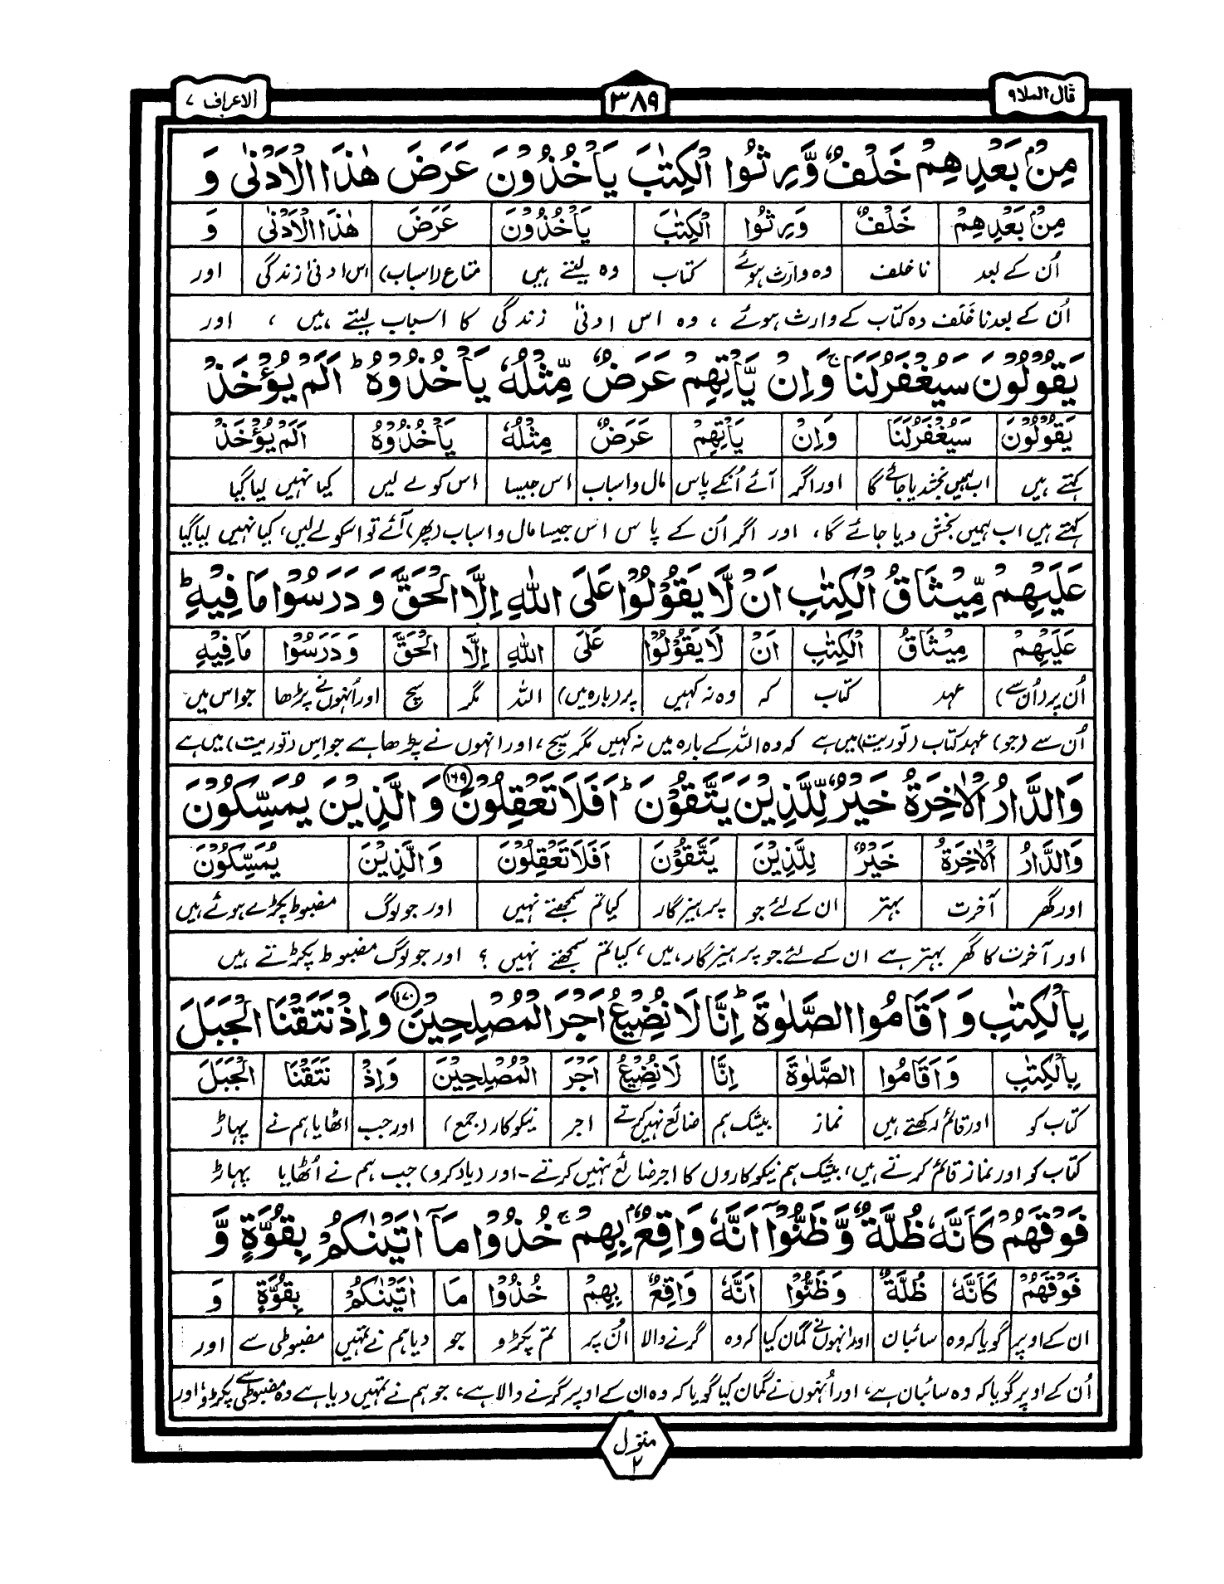 قال الملا۹
۳۸۹
الاعراف ۷
مِنْۢ بَعْدِهِمْ خَلْفٌ وَّرِثُوا الْكِتٰبَ يَاْخُذُوْنَ عَرَضَ هٰذَا الْاَدْنٰى وَ
مِنْۢ بَعْدِهِمْ خَلْفٌ وَرِثُوا الْكِتٰبَ يَاْخُذُوْنَ عَرَضَ هٰذَا الْاَدْنٰى وَ
اُن کے بعد ناخلف وہ وارث ہوئے کتاب وہ لیتے ہیں متاع (اسباب) اس ادنیٰ زندگی اور
اُن کے بعد ناخَلف وہ کتاب کے وارث ہوئے ، وہ اس ادنیٰ زندگی کا اسباب لیتے ہیں ، اور
يَقُوْلُوْنَ سَيُغْفَرُ لَنَا ۚ وَاِنْ يَّاْتِهِمْ عَرَضٌ مِّثْلُهٗ يَاْخُذُوْهُ ؕ اَلَمْ يُؤْخَذْ
يَقُوْلُوْنَ سَيُغْفَرُ لَنَا وَاِنْ يَاْتِهِمْ عَرَضٌ مِثْلُهٗ يَاْخُذُوْهُ اَلَمْ يُؤْخَذْ
کہتے ہیں اب ہمیں بخشدیا جائے گا اور اگر آئے اُنکے پاس مال و اسباب اس جیسا اس کو لے لیں کیا نہیں لیا گیا
کہتے ہیں اب ہمیں بخش دیا جائے گا، اور اگر اُن کے پاس اس جیسا مال و اسباب (پھر) آئے تو اسکو لے لیں، کیا نہیں لیا گیا
عَلَيْهِمْ مِّيْثَاقُ الْكِتٰبِ اَنْ لَّا يَقُوْلُوْا عَلَى اللّٰهِ اِلَّا الْحَقَّ وَ دَرَسُوْا مَا فِيْهِ ؕ
عَلَيْهِمْ مِيْثَاقُ الْكِتٰبِ اَنْ لَا يَقُوْلُوْا عَلَى اللّٰهِ اِلَّا الْحَقَّ وَ دَرَسُوْا مَا فِيْهِ
اُن پر (اُن سے) عہد کتاب کہ وہ نہ کہیں پر (بارہ میں) اللہ مگر سچ اور اُنہوں نے پڑھا جو اس میں
اُن سے (جو) عہد کتاب (توریت) میں ہے کہ وہ اللہ کے بارہ میں نہ کہیں مگر سچ، اور انہوں نے پڑھا ہے جو اس (توریت) میں ہے
وَالدَّارُ الْاٰخِرَةُ خَيْرٌ لِّلَّذِيْنَ يَتَّقُوْنَ ؕ اَفَلَا تَعْقِلُوْنَ ۱۶۹ وَ الَّذِيْنَ يُمَسِّكُوْنَ
وَالدَّارُ الْاٰخِرَةُ خَيْرٌ لِلَّذِيْنَ يَتَّقُوْنَ اَفَلَا تَعْقِلُوْنَ وَالَّذِيْنَ يُمَسِّكُوْنَ
اور گھر آخرت بہتر ان کے لئے جو پرہیزگار کیا تم سمجھتے نہیں اور جو لوگ مضبوط پکڑے ہوئے ہیں
اور آخرت کا گھر بہتر ہے ان کے لئے جو پرہیزگار ہیں، کیا تم سمجھتے نہیں ؟ اور جو لوگ مضبوط پکڑتے ہیں
بِالْكِتٰبِ وَ اَقَامُوا الصَّلٰوةَ ؕ اِنَّا لَا نُضِيْعُ اَجْرَ الْمُصْلِحِيْنَ ۱۷۰ وَ اِذْ نَتَقْنَا الْجَبَلَ
بِالْكِتٰبِ وَ اَقَامُوا الصَّلٰوةَ اِنَّا لَا نُضِيْعُ اَجْرَ الْمُصْلِحِيْنَ وَاِذْ نَتَقْنَا الْجَبَلَ
کتاب کو اور قائم رکھتے ہیں نماز بیشک ہم ضائع نہیں کرتے اجر نیکوکار (جمع) اور جب اٹھایا ہم نے پہاڑ
کتاب کو اور نماز قائم کرتے ہیں، بیشک ہم نیکوکاروں کا اجر ضائع نہیں کرتے۔ اور (یاد کرو) جب ہم نے اُٹھایا پہاڑ
فَوْقَهُمْ كَاَنَّهٗ ظُلَّةٌ وَّ ظَنُّوْۤا اَنَّهٗ وَاقِعٌۢ بِهِمْ ۚ خُذُوْا مَاۤ اٰتَيْنٰكُمْ بِقُوَّةٍ وَّ
فَوْقَهُمْ كَاَنَّهٗ ظُلَّةٌ وَ ظَنُّوْا اَنَّهٗ وَاقِعٌ بِهِمْ خُذُوْا مَا اٰتَيْنٰكُمْ بِقُوَّةٍ وَ
ان کے اوپر گویا کہ وہ سائبان اور انہوں نے گمان کیا کہ وہ گرنے والا اُن پر تم پکڑو جو دیا ہم نے تمہیں مضبوطی سے اور
اُن کے اوپر گویا کہ وہ سائبان ہے، اور اُنہوں نے گمان کیا گویا کہ وہ ان کے اوپر گرنے والا ہے، جو ہم نے تمہیں دیا ہے وہ مضبوطی سے پکڑو، اور
منزل
۲